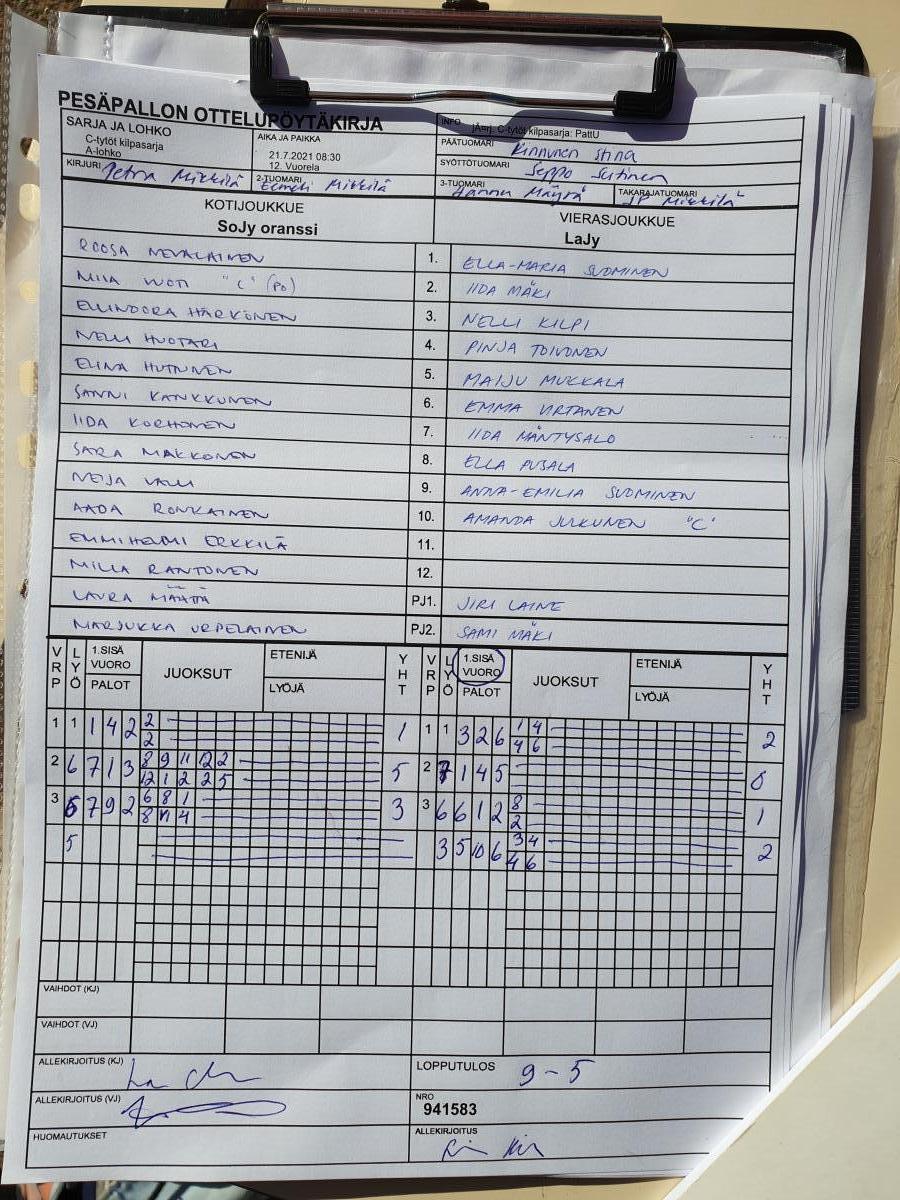 PESÄPALLON OTTELUPÖYTÄKIRJA
SARJA JA LOHKO
C-tytöt kilpasarja
A-lohko
AIKA JA PAIKKA
21.7.2021 08:30
12. Vuorela
INFO
C-tytöt kilpasarja: PattU
PÄÄTUOMARI Kinnunen Stina
SYÖTTÖTUOMARI Seppo Sutinen
KIRJURI Petra Mikkilä
2-TUOMARI Eemeli Mikkilä
3-TUOMARI Hannu Mäyrä
TAKARAJATUOMARI JP Mikkilä
KOTIJOUKKUE
SoJy oranssi
VIERASJOUKKUE
LaJy
ROOSA NEVALAINEN 1. ELLA-MARIA SUOMINEN
MIIA VUOTI "C" (PO) 2. IIDA MÄKI
ELLINOORA HÄRKÖNEN 3. NELLI KILPI
NELLI HUOTARI 4. PINJA TOIVONEN
ELINA HUTUNEN 5. MAIJU MUKKALA
SANNI KANKKUNEN 6. EMMA VIRTANEN
IIDA KORHONEN 7. IIDA MÄNTYSALO
SARA MAKKONEN 8. ELLA PUSALA
NEIJA VALLI 9. ANNA-EMILIA SUOMINEN
AADA RONKAINEN 10. AMANDA JULKUNEN "C"
EMMIHELMI ERKKILÄ 11.
MILLA RANTONEN 12.
LAURA MÄÄTTÄ PJ1. JIRI LAINE
MARJUKKA URPELAINEN PJ2. SAMI MÄKI
VRP LYÖ 1.SISÄ VUORO PALOT JUOKSUT ETENIJÄ LYÖJÄ YHT VRP LYÖ 1.SISÄ VUORO PALOT JUOKSUT ETENIJÄ LYÖJÄ YHT
1 1 1 4 2 2 1 1 1 3 2 6 1 4 2
2 4 6
2 6 7 1 3 8 9 11 12 2 5 2 7 1 4 5 0
12 1 2 2 5
3 6 7 9 2 6 8 1 3 3 6 6 1 2 8 1
8 11 4 2
5 3 5 10 6 3 4 2
4 6
VAIHDOT (KJ)
VAIHDOT (VJ)
ALLEKIRJOITUS (KJ)
LOPPUTULOS 9-5
ALLEKIRJOITUS (VJ)
NRO
941583
HUOMAUTUKSET
ALLEKIRJOITUS